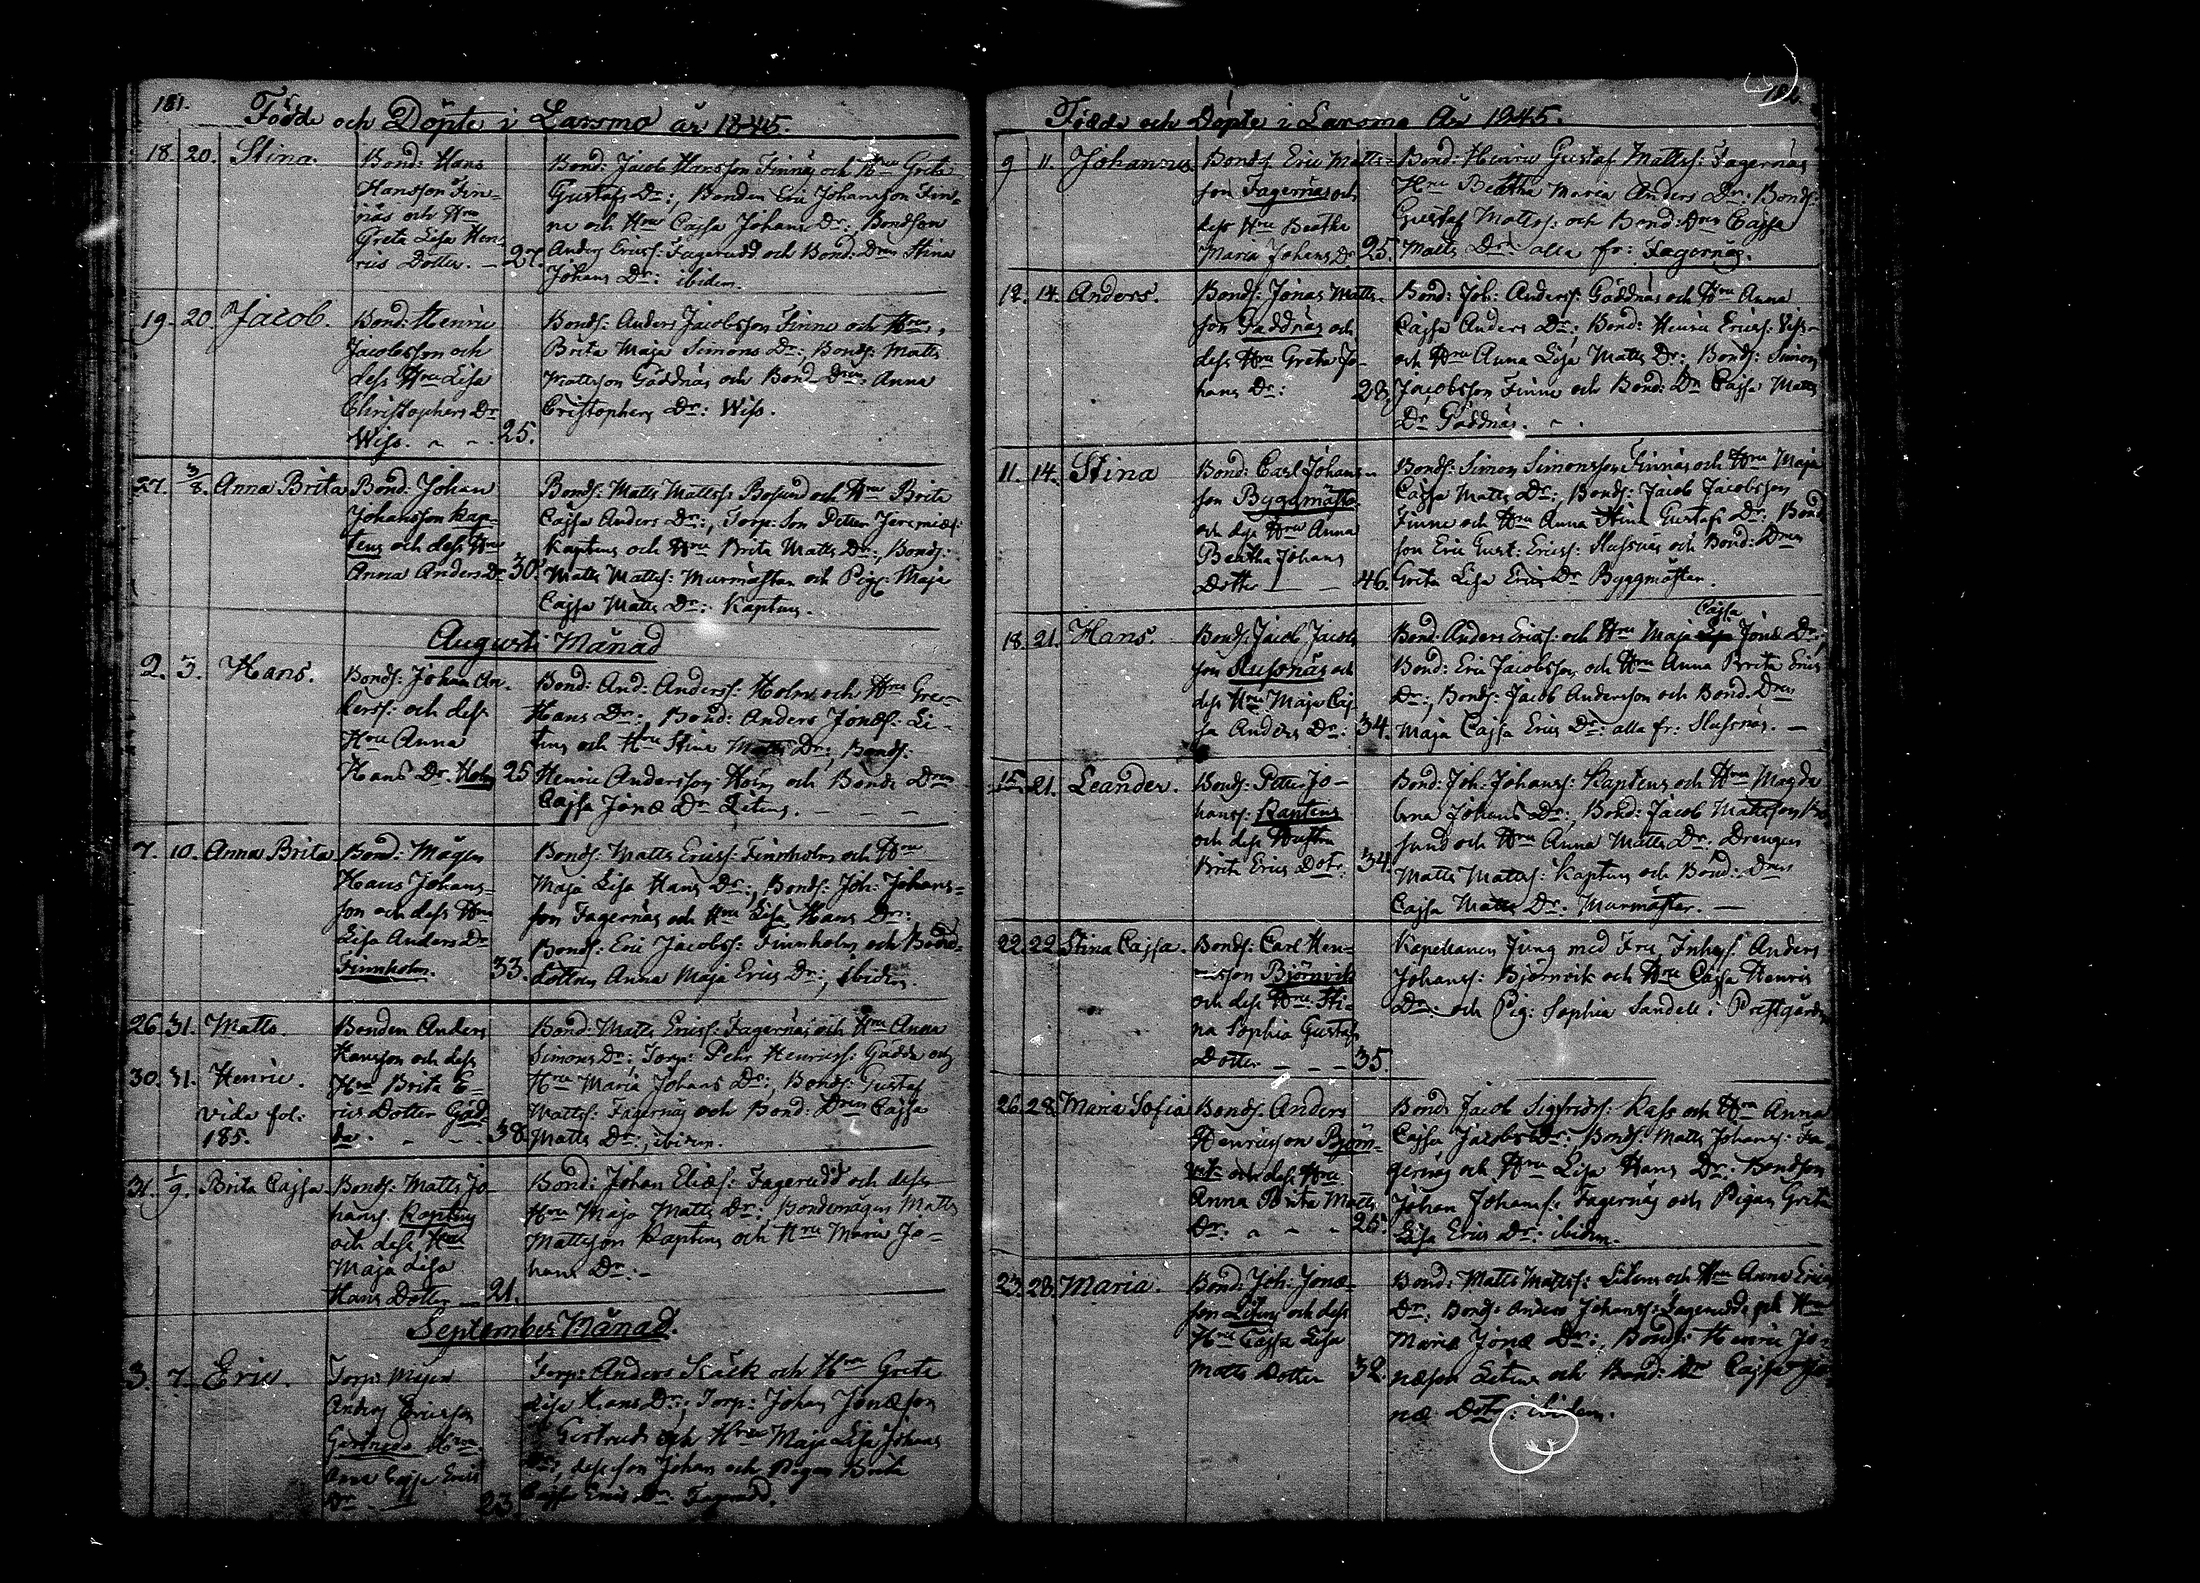 181.
Födde och Döpte i Larsmo år 1845.
18 20. Stina.
Bond: Hans
Hansson Fin-
näs och Hru
Greta Lisa Hen-
rics Dotter. — 27.
Bond: Jacob Hansson Finnäs och Hru Greta
Gustafs Dr:, Bonden Eric Johansson Fin-
ne och Hru Cajsa Johans Dr: Bondson
Anders Ericss: Fagerudd och Bond: Dren Stina
Johans Dr: ibidem.
19. 20 Jacob.
Bond: Henric
Jacobsson och
dess Hru Lisa
Christophers Dr
Wiss. 25.
Bonds: Anders Jacobsson Finne och Hru
Brita Maja Simons Dr: Bonds: Matts
Mattsson Gäddnäs och Bond Dren Anna
Cristophers Dr: Wiss.
27. 3/8. Anna Brita
Bond: Johan
Johansson Kap-
tens och dess Hru
Anna Anders Dr 30.
Bonds: Matts Mattss: Bosund och Hru Brita
Cajsa Anders Dr:, Torp: Son Petter Jeremiæs:
Kaptens och Hru Brita Matts Dr:, Bonds:
Matts Mattss: Murmästar och Pig: Maja
Cajsa Matts Dr: Kaptens.
Augusti Månad
2. 3. Hans.
Bonds: Johan An-
derss: och dess
Hru Anna
Hans Dr. Holm 25
Bond: And: Anderss: Holm och Hru Gre-
Hans Dr:, Bond: Anders Jonæs: Li-
tens och Hru Stina Matts Dr:, Bonds:
Henric Andersson Holm och Bonde Dren
Cajsa Jonæ Dr Litens.
7. 10. Anna Brita
Bond: Mågen
Hans Johans-
son och dess Hru
Lisa Anders Dr
Finnholm. 33.
Bonds: Matts Ericss: Finnholm och Hru
Maja Lisa Hans Dr:, Bonds: Joh: Johans-
son Fagernäs och Hru Lisa Hans Dr:
Bonds: Eric Jacobss: Finnholm och Bond-
dottren Anna Maja Erics Dr:, ibidm.
26 31. Matts.
30. 31. Henric.
vida fol:
185.
Bonden Anders
Hansson och dess
Hru Brita E-
rics Dotter Gäd-
da. 38.
Bond: Matts Ericss: Fagernäs och Hru Anna
Simons Dr:, Torp: Pehr Henricss: Gädda och
Hru Maria Johans Dr:, Bonds: Gustaf
Mattss: Fagernäs och Bond: Dren Cajsa
Matts Dr:, ibidem.
31. 1/9. Brita Cajsa
Bonds: Matts Jo-
hanss. Kaptens
och dess Hru
Maja Lisa
Hans Dotter — 21.
Bond: Johan Eliæs: Fagerudd och dess
Hru Maja Matts Dr:, Bondemågen Matts
Mattsson Kaptens och Hru Maria Jo-
hans Dr: —
September Månad.
3. 7. Eric.
Torp: Mågen
Anders Ericsson
Gertruds Hru
Anna Cajsa Erics
Dr. 23
Torp: Anders Käck och Hru Greta
Lisa Hans Dr:, Torp: Johan Jonæson
Gertruds och Hru Maja Lisa Johans
Dr:, dess son Johan och Pigan Brita
Cajsa Erics Dr: Fagerudd.
Födde och Döpte i Larsmo År 1845.
9 11. Johannes
Bonds: Eric Matts-
son Fagernäs och
dess Hru Beatha
Maria Johans Dr 25.
Bond: Henric Gustaf Mattss: Fagernäs
Hru Beatha Maria Anders Dr: Bonds:
Gustaf Mattss: och Bond: Dren Cajsa
Matts Dr: alla fr: Fagernäs.
12. 14. Anders.
Bonds: Jonas Matts-
son Gäddnäs och
dess Hru Greta Jo-
hans Dr: 28,
Bond: Joh: Anderss: Gäddnäs och Hru Anna
Cajsa Anders Dr:, Bond: Henric Ericss: Viss-
och Hru Anna Lisa Matts Dr:, Bonds: Simon
Jacobsson Finne och Bond: Dr Cajsa Matts
Dr Gäddnäs.
11. 14. Stina
Bond: Carl Johans-
son Byggmästar
och dess Hru Anna
Beatha Johans
Dotter — 46.
Bonds: Simon Simonsson Finnäs och Hru Maja
Cajsa Matts Dr:, Bonds: Jacob Jacobsson
Finne och Hru Anna Stina Gustafs Dr: Bond
son Eric Gust: Ericss: Slussnäs och Bond: Dren
Greta Lisa Erics Dr Byggmästar.
18. 21. Hans
Bonds: Jacob Jacobs
son Slussnäs och
dess Hru Maja Caj-
sa Anders Dr: 34.
Cajsa
Bond: Anders Ericss: och Hru Maja Lisa Jonæ Dr:,
Bond: Eric Jacobsson och Hru Anna Brita Erics
Dr:, Bonds: Jacob Andersson och Bond: Dren
Maja Cajsa Erics Dr: alla fr: Slussnäs. —
15. 21. Leander.
Bonds: Petter Jo-
hanss: Kaptens
och dess Hustru
Brita Erics Dotr. 34.
Bond: Joh: Johanss: Kaptens och Hru Magda
lena Johans Dr:, Bond: Jacob Mattsson Bo
sund och Hru Anna Matts Dr: Drengen
Matts Mattss: Kaptens och Bond: Dren
Cajsa Matts Dr: Murmästar. —
22. 22 Stina Cajsa.
Bonds: Carl Hen-
ricsson Björnvik
och dess Hru Sti-
na Sophia Gustafs
Dotter — — 35.
Kapellanen Jung med Fru, Inhys: Anders
Johanss: Björnvik och Hru Cajsa Henrics
Dr: och Pig: Sophia Sandell: Prestgården
26. 28 Maria Sofia
Bonds. Anders
Henricsson Björn-
vik och dess Hru
Anna Brita Matts
Dr: 25.
Bond: Jacob Sigfridss: Kass och Hru Anna
Cajsa Jacobs Dr:, Bonds: Matts Johanss: Fa
gernäs och Hru Lisa Hans Dr: Bondson
Johan Johanss: Fagernäs och Pigan Greta
Lisa Erics Dr: ibidm.
23. 28. Maria.
Bond: Joh: Jonæ-
son Litens och dess
Hru Cajsa Lisa
Matts Dotter 32.
Bond: Matts Mattss: Litens och Hru Anna Erics
Dr: Bonds: Anders Johanss: Fagerudd och Hru
Maria Jonæ Dr:, Bonds: Henric Jo-
næson Litens och Bond: Dr Cajsa Jo-
næ Dotr: ibidem.